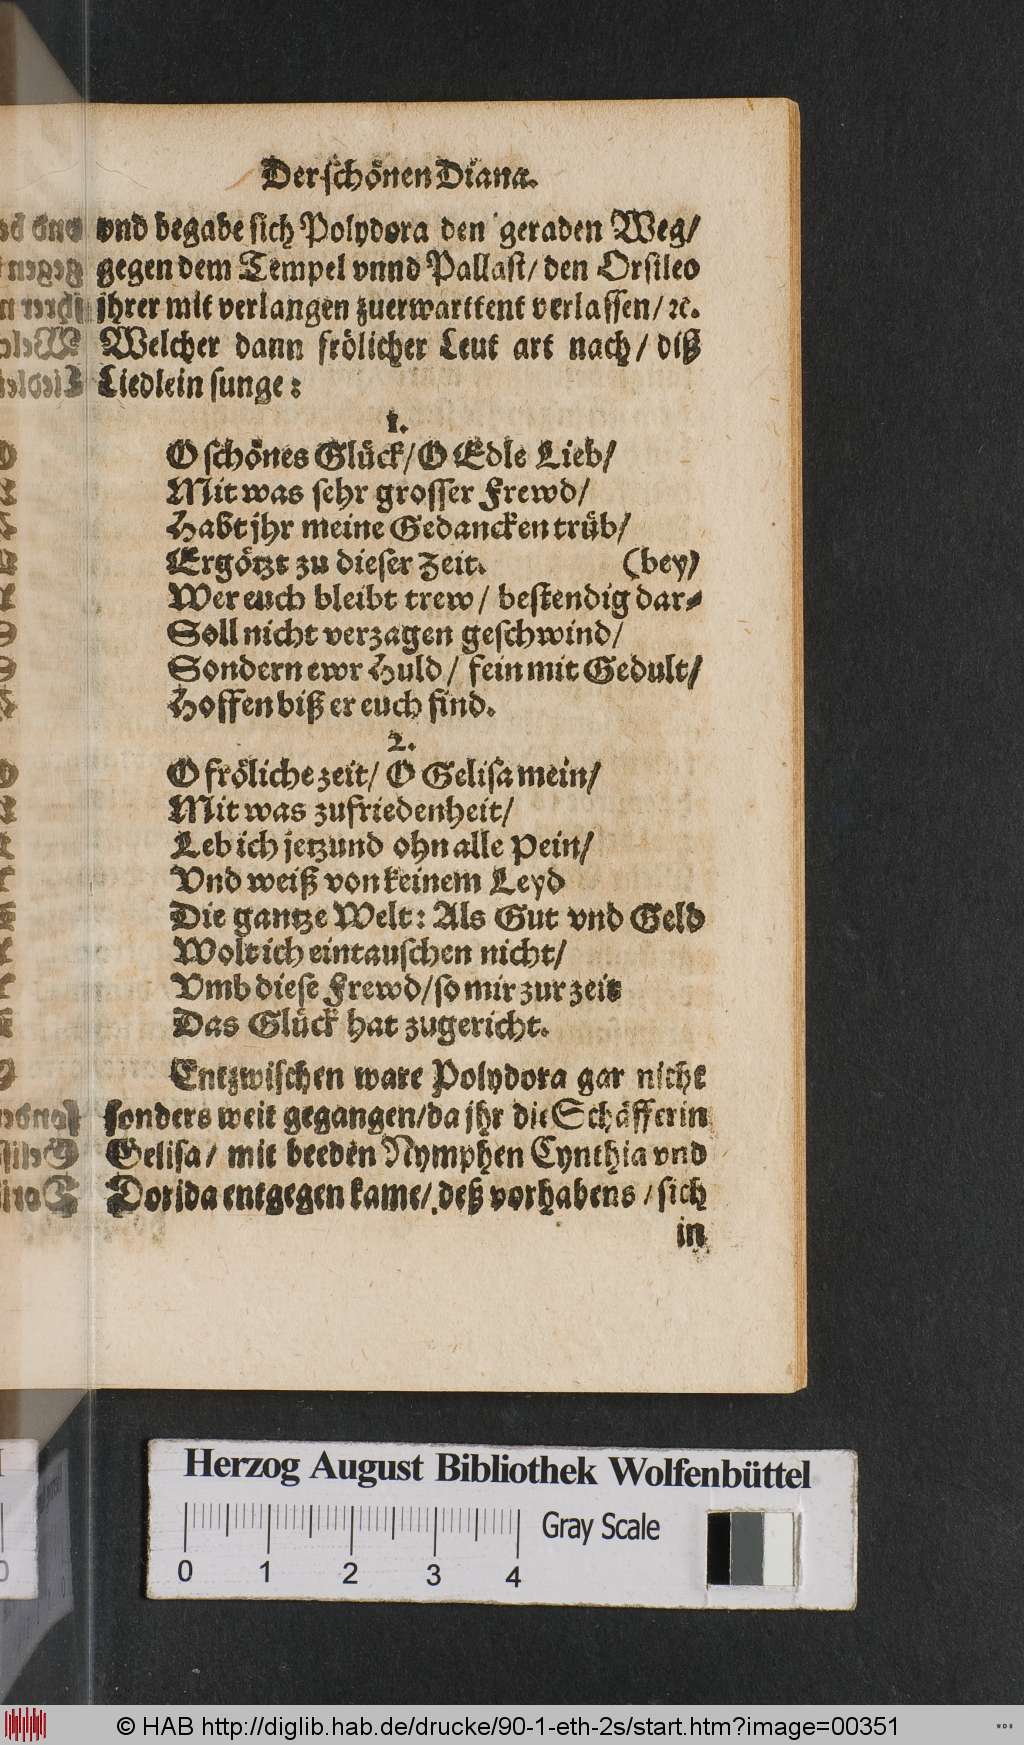 Der schönen Diana.
vnd begabe sich Polydora den geraden Weg/
gegen dem Tempel vnnd Pallast/ den Orsileo
jhrer mit verlangen zuerwarttent verlassen/ ꝛc.
Welcher dann frölicher Leut art nach/ diß
Liedlein sunge:
1.
O schönes Glück/ O Edle Lieb/
Mit was sehr grosser Frewd/
Habt jhr meine Gedancken trüb/
Ergötzt zu dieser Zeit. (bey)
Wer euch bleibt trew/ bestendig dar-
Soll nicht verzagen geschwind/
Sondern ewr Huld/ fein mit Gedult/
Hoffen biß er euch find.
2.
O fröliche zeit/ O Gelisa mein/
Mit was zufriedenheit/
Leb ich jetzund ohn alle Pein/
Vnd weiß von keinem Leyd
Die gantze Welt: Als Gut vnd Geld
Wolt ich eintauschen nicht/
Vmb diese Frewd/ so mir zur zeit
Das Glück hat zugericht.
Entzwischen ware Polydora gar nicht
sonders weit gegangen/ da jhr die Schäfferin
Gelisa/ mit beeden Nymphen Cynthia vnd
Dorida entgegen kame/ deß vorhabens/ sich
in
Herzog August Bibliothek Wolfenbüttel
0 1 2 3 4 Gray Scale
© HAB http://diglib.hab.de/drucke/90-1-eth-2s/start.htm?image=00351